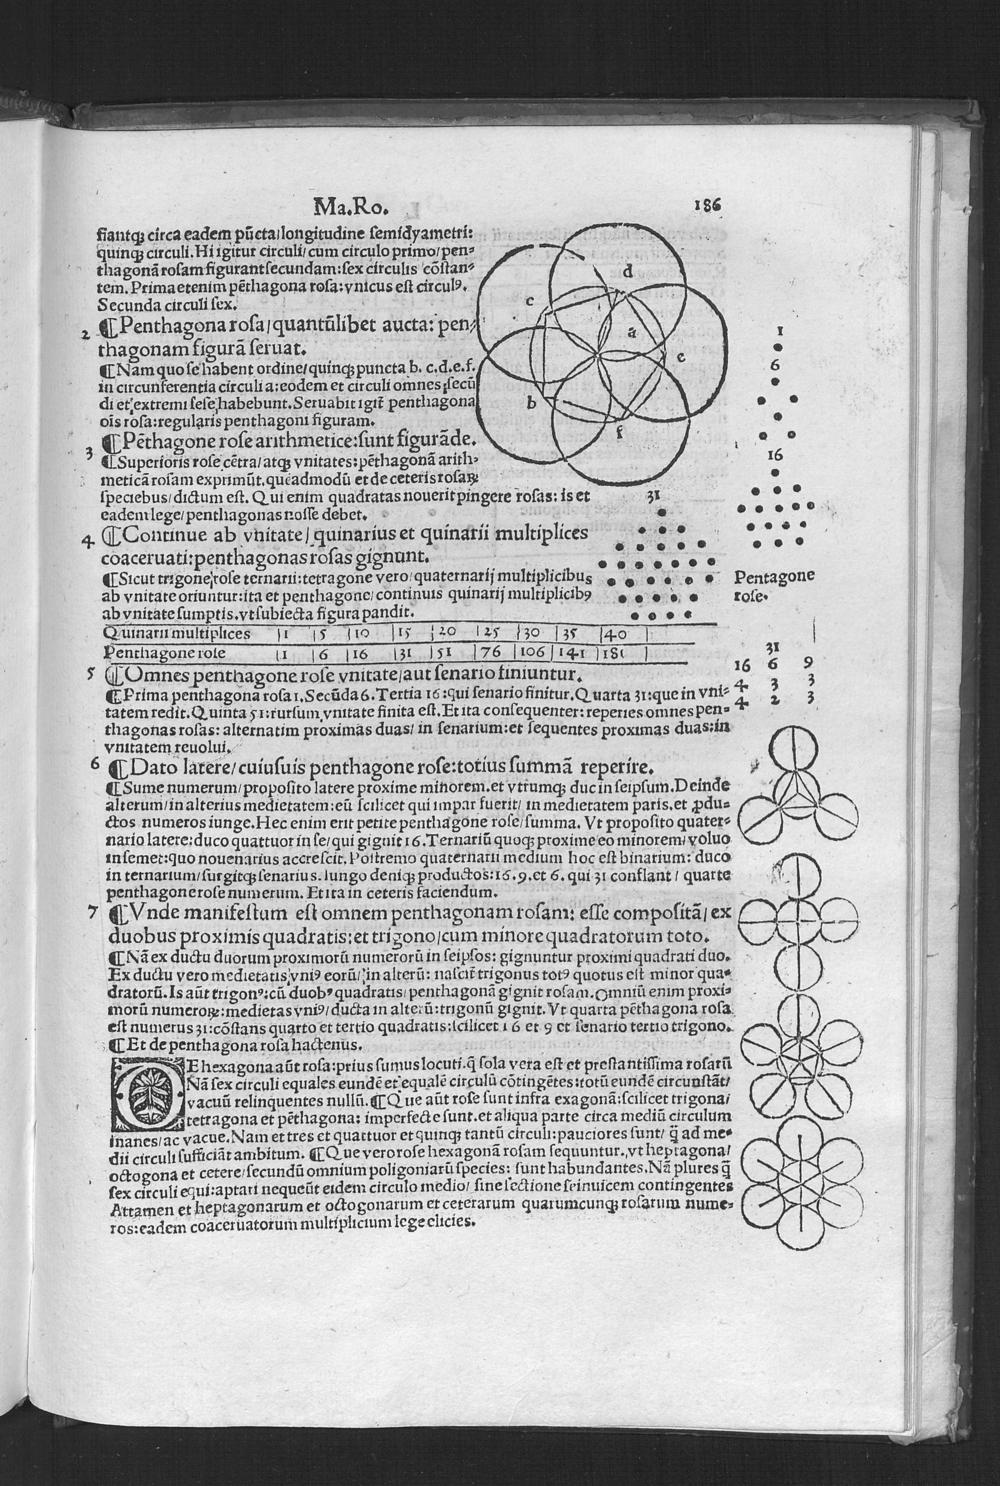 Ma.Ro.
186
fiantqꝫ circa eadem pũcta/longitudine semidyametri:
quinqꝫ circuli. Hi igitur circuli/cum circulo primo/pen-
thagonã rosam figurant secundam: sex circulis cõstan-
tem. Prima etenim pẽthagona rosa: vnicus est circulꝰ.
Secunda circuli sex.
2 ¶Penthagona rosa/quantũlibet aucta: pen-
thagonam figurã seruat.
¶Nam quo se habent ordine/quinqꝫ puncta b. c.d.e.f.
in circunferentia circuli a: eodem et circuli omnes/secũ
di et/extremi sese/habebunt. Seruabit igit̃ penthagona
oĩs rosa: regularis penthagoni figuram.
3 ¶Pẽthagone rose arithmetice: sunt figurãde.
¶Superioris rose cẽtra/atqꝫ vnitates: pẽthagonã arith-
meticã rosam exprimũt. quẽadmodũ et de ceteris rosaꝝ
speciebus/dictum est. Qui enim quadratas nouerit pingere rosas: is et
eadem lege/penthagonas nosse debet.
4 ¶Continue ab vnitate/quinarius et quinarii multiplices
coaceruati: penthagonas rosas gignunt.
¶Sicut trigone/rose ternarii: tetragone vero/quaternarij multiplicibus
ab vnitate oriuntur: ita et penthagone/continuis quinarij multiplicibꝰ
ab vnitate sumptis. vt subiecta figura pandit.
Quinarii multiplices |1 |5 |10 |15 |20 |25 |30 |35 |40 |
Penthagone rose |1 |6 |16 |31 |51 |76 |106 |141 |181 |
5 ¶Omnes penthagone rose vnitate/aut senario finiuntur.
¶Prima penthagona rosa 1. Secũda 6. Tertia 16: qui senario finitur. Quarta 31: que in vni-
tatem redit. Quinta 51: rursum vnitate finita est. Et ita consequenter: reperies omnes pen-
thagonas rosas: alternatim proximas duas/in senarium: et sequentes proximas duas: in
vnitatem reuolui.
6 ¶Dato latere/cuiusuis penthagone rose: totius summã reperire.
¶Sume numerum/proposito latere proxime minorem. et vtrumqꝫ duc in seipsum. Deinde
alterum/in alterius medietatem: eũ scilicet qui impar fuerit/in medietatem paris. et ꝓdu-
ctos numeros iunge. Hec enim erit petite penthagone rose/summa. Vt proposito quater-
nario latere: duco quattuor in se/qui gignit 16. Ternariũ quoqꝫ proxime eo minorem/voluo
in semet: quo nouenarius accrescit. Postremo quaternarii medium hoc est binarium: duco
in ternarium/surgitqꝫ senarius. Iungo deniqꝫ productos: 16. 9. et 6. qui 31 conflant/quarte
penthagone rose numerum. Et ita in ceteris faciendum.
7 ¶Vnde manifestum est omnem penthagonam rosam: esse compositã/ex
duobus proximis quadratis: et trigono/cum minore quadratorum toto.
¶Nã ex ductu duorum proximorũ numerorũ in seipsos: gignuntur proximi quadrati duo.
Ex ductu vero medietatis/vniꝰ eorũ/in alterũ: nascit̃ trigonus totꝰ quotus est minor qua-
dratorũ. Is aũt trigonꝰ: cũ duobꝰ quadratis/penthagonã gignit rosam. Omniũ enim proxi-
morũ numeroꝝ: medietas vniꝰ/ducta in alterũ: trigonũ gignit. Vt quarta pẽthagona rosa
est numerus 31: cõstans quarto et tertio quadratis: scilicet 16 et 9 et senario tertio trigono.
¶Et de penthagona rosa hactenus.
DE hexagona aũt rosa: prius sumus locuti. q̃ sola vera est et prestantissima rosarũ
Nã sex circuli equales eundẽ et equalẽ circulũ cõtingẽtes: totũ eundẽ circunstãt/
vacuũ relinquentes nullũ. ¶Que aũt rose sunt infra exagonã: scilicet trigona/
tetragona et pẽthagona: imperfecte sunt. et aliqua parte circa mediũ circulum
inanes/ac vacue. Nam et tres et quattuor et quinqꝫ tantũ circuli: pauciores sunt/q̃ ad me-
dii circuli sufficiãt ambitum. ¶Que vero rose hexagonã rosam sequuntur. vt heptagona/
octogona et cetere/secundũ omnium poligoniarũ species: sunt habundantes. Nã plures q̃
sex circuli equi: aptari nequeũt eidem circulo medio/sine sectione seinuicem contingentes
Attamen et heptagonarum et octogonarum et ceterarum quarumcunqꝫ rosarum nume-
ros: eadem coaceruatorum multiplicium lege elicies.
d
c
a
e
b
f
1
6
16
31
Pentagone
rose.
31
16 6 9
4 3 3
4 2 3